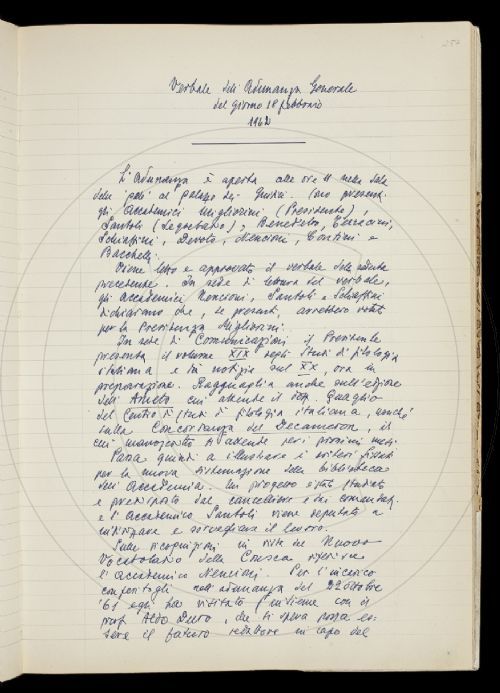 Verbale dell'Adunanza Generale
del giorno 18 febbraio
1962
L'Adunanza è aperta alle ore 11 nella Sala
delle "pale" al palazzo dei Giudici. Sono presenti
gli Accademici Migliorini (Presidente),
Santoli (Segretario), Benedetto, Terracini,
Schiaffini, Devoto, Nencioni, Contini e
Bacchelli.
Viene letto e approvato il verbale della seduta
precedente. In sede di lettura del verbale,
gli accademici Nencioni, Santoli e Schiaffini
dichiarano che, se presenti, avrebbero votato
per la Presidenza Migliorini.
In sede di Comunicazioni il Presidente
presenta il volume XIX degli Studi di filologia
italiana e dà notizie sul XX, ora in
preparazione. Ragguaglia anche sull'edizione
dell'Ameto cui attende il dott. Quaglio
del Centro di studi di filologia italiana, nonché
sulla Concordanza del Decameron, il
cui manoscritto si attende per i prossimi mesi.
Passa quindi a illustrare i criteri fissati
per la nuova sistemazione della biblioteca
dell'Accademia. Un progetto è stato studiato
e predisposto dal cancelliere e dai comandati
e l'Accademico Santoli viene deputato a
indirizzare e sorvegliare il lavoro.
Sulle ricognizioni in vista del Nuovo
Vocabolario della Crusca riferisce
l'accademico Nencioni. Per l'incarico
conferitogli nell'adunanza del 22 ottobre
'61 egli ha visitato insieme con il
prof. Aldo Duro, che si spera possa es-
sere il futuro redattore in capo del